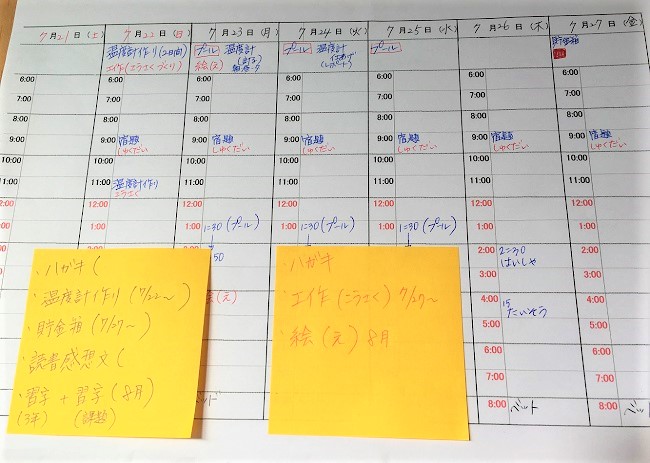 7月21日(土) 7月22日(日) 7月23日(月) 7月24日(火) 7月25日(水) 7月26日(木) 7月27日(金)
温度計作り(2日間)
工作(こうさくづくり)
プール 温度計
絵(え)
プール 温度計
プール
貯金箱
6:00 6:00 6:00 6:00 6:00 6:00 6:00
7:00 7:00 7:00 7:00 7:00 7:00 7:00
8:00 8:00 8:00 8:00 8:00 8:00 8:00
9:00 9:00 宿題 9:00 宿題 9:00 宿題 9:00 宿題 9:00 宿題 9:00 宿題
しゅくだい しゅくだい しゅくだい しゅくだい しゅくだい しゅくだい
10:00 10:00 10:00 10:00 10:00 10:00 10:00
11:00 11:00 温度計作り 11:00 11:00 11:00 11:00 11:00
こうさく
12:00 12:00 12:00 12:00 12:00 12:00 12:00
1:00 1:00 1:00 1:30(プール) 1:00 1:30(プール) 1:00 1:30(プール) 1:00 1:00
50
2:00 2:30 2:00
はいしゃ
3:00 3:00
絵(え)
4:00 15 4:00
たいそう
5:00 5:00
6:00 6:00
7:00 7:00
8:00 ベット 8:00
・ハガキ(
・温度計作り(7/22〜)
・貯金箱(7/27〜)
・読書感想文(
・習字+習字(8月)
(3年) (課題)
・ハガキ
・工作(こうさく)7/27〜
・絵(え)8月